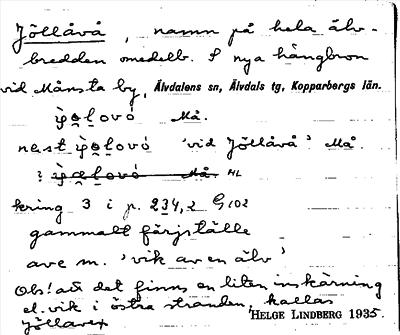 Jöllåvå, namn på hela älv-
bredden omedelb. S nya hängbron
vid Månsta by, Älvdalens sn, Älvdals tg, Kopparbergs län.
i̯o̯lovó Må.
nest i̯o̯lovó 'vid Jöllåvå' Må.
? i̯æ̯lovó Må HL
kring 3 i p. 234,2 G 102
gammalt färjställe
ave m. 'vik av en älv'
Obs! att det finns en liten inskärning
el. vik i östra stranden, kallas
Jöllavex HELGE LINDBERG 1935.